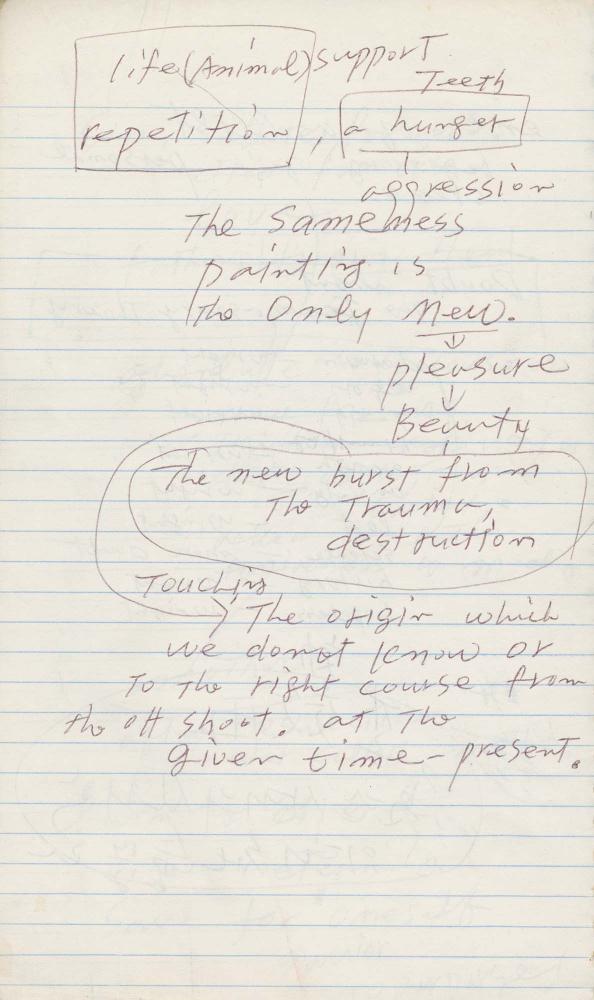 life (Animal) support
Teeth
repetition, a hunger
aggression
The Sameness
painting is
The Only New.
pleasure
Beauty
The new burst from
The Trauma,
destruction
Touching
The origin which
we donot know or
To The right course from
the off shoot. at The
given time-present.